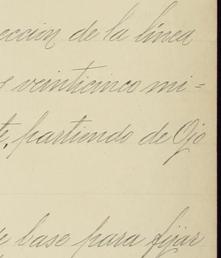 ección de la línea
s veinticinco mi=
te, partiendo de Ojo
e base para fijar